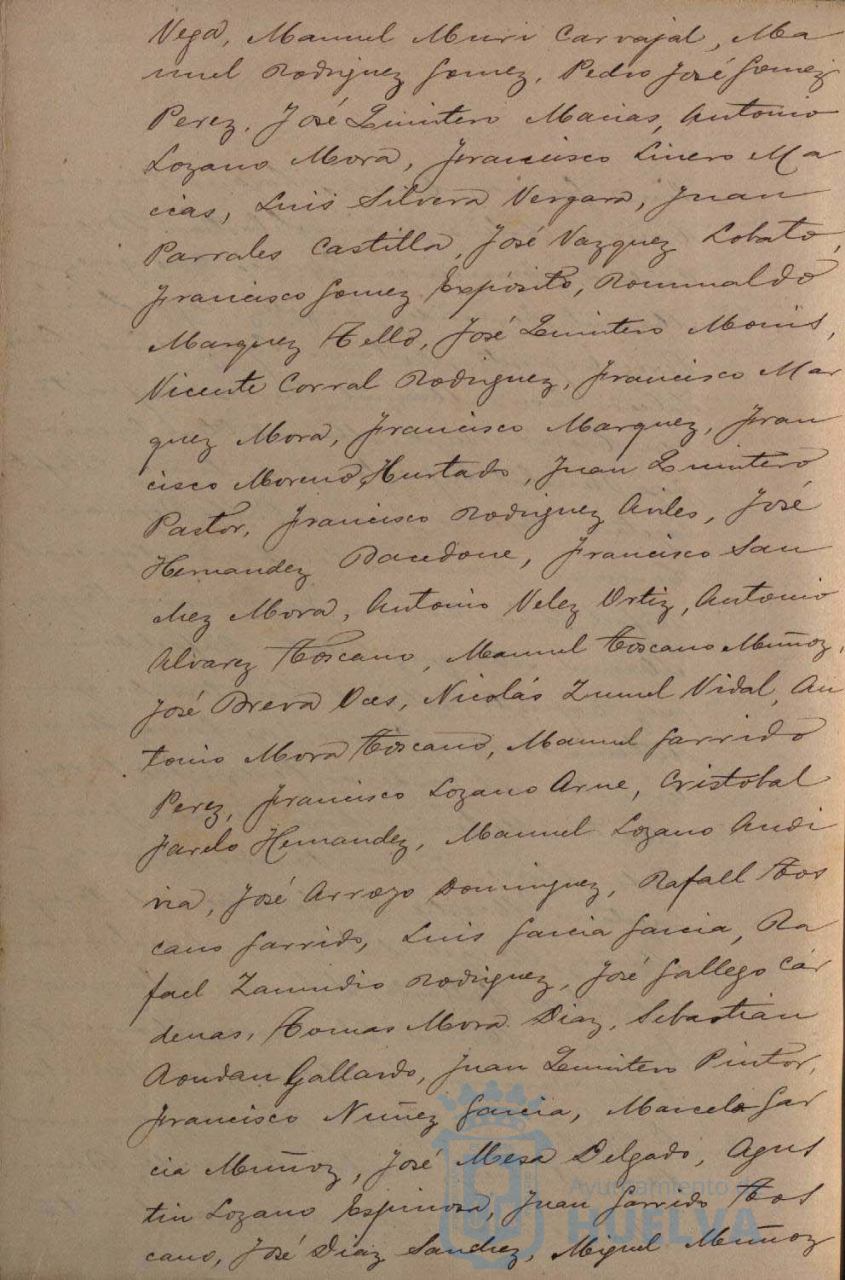 Vega, Manuel Muri Carvajal, Ma
nuel Rodriguez Gomez, Pedro José Gomez
Perez, José Quintero Macias, Antonio
Lozano Mora, Francisco Linero Ma
cias, Luis Silvera Vergara, Juan
Parrales Castilla, José Vazquez Lobato,
Francisco Gomez Expósito, Romualdo
Marquez Tello, José Quintero Monis,
Vicente Corral Rodriguez, Francisco Mar
quez Mora, Francisco Marquez, Fran
cisco Moreno Hurtado, Juan Quintero
Pastor, Francisco Rodriguez Aviles, José
Hernandez Francisco San
chez Mora, Antonio Velez Ortiz, Antonio
Alvarez Toscano, Manuel Toscano Muñoz,
José Breva Nicolás Vidal, An
tonio Mora Toscano, Manuel Garrido
Perez, Francisco Lozano Arne, Cristobal
Farelo Hernandez, Manuel Lozano Andi
via, José Arroyo Dominguez, Rafael Tos
cano Garrido, Luis Garcia Garcia, Ra
fael Zamudio Rodriguez, José Gallego Cár
denas, Tomas Mora Diaz, Sebastian
Roudan Gallardo, Juan Quintero Pintor,
Francisco Nuñez Garcia, Marcelo Gar
cia Muñoz, José Mesa Delgado, Agus
tin Lozano Espinosa, Juan Garrido Tos
cano, José Diaz Sanchez, Miguel Muñoz
Ayuntamiento de
HUELVA